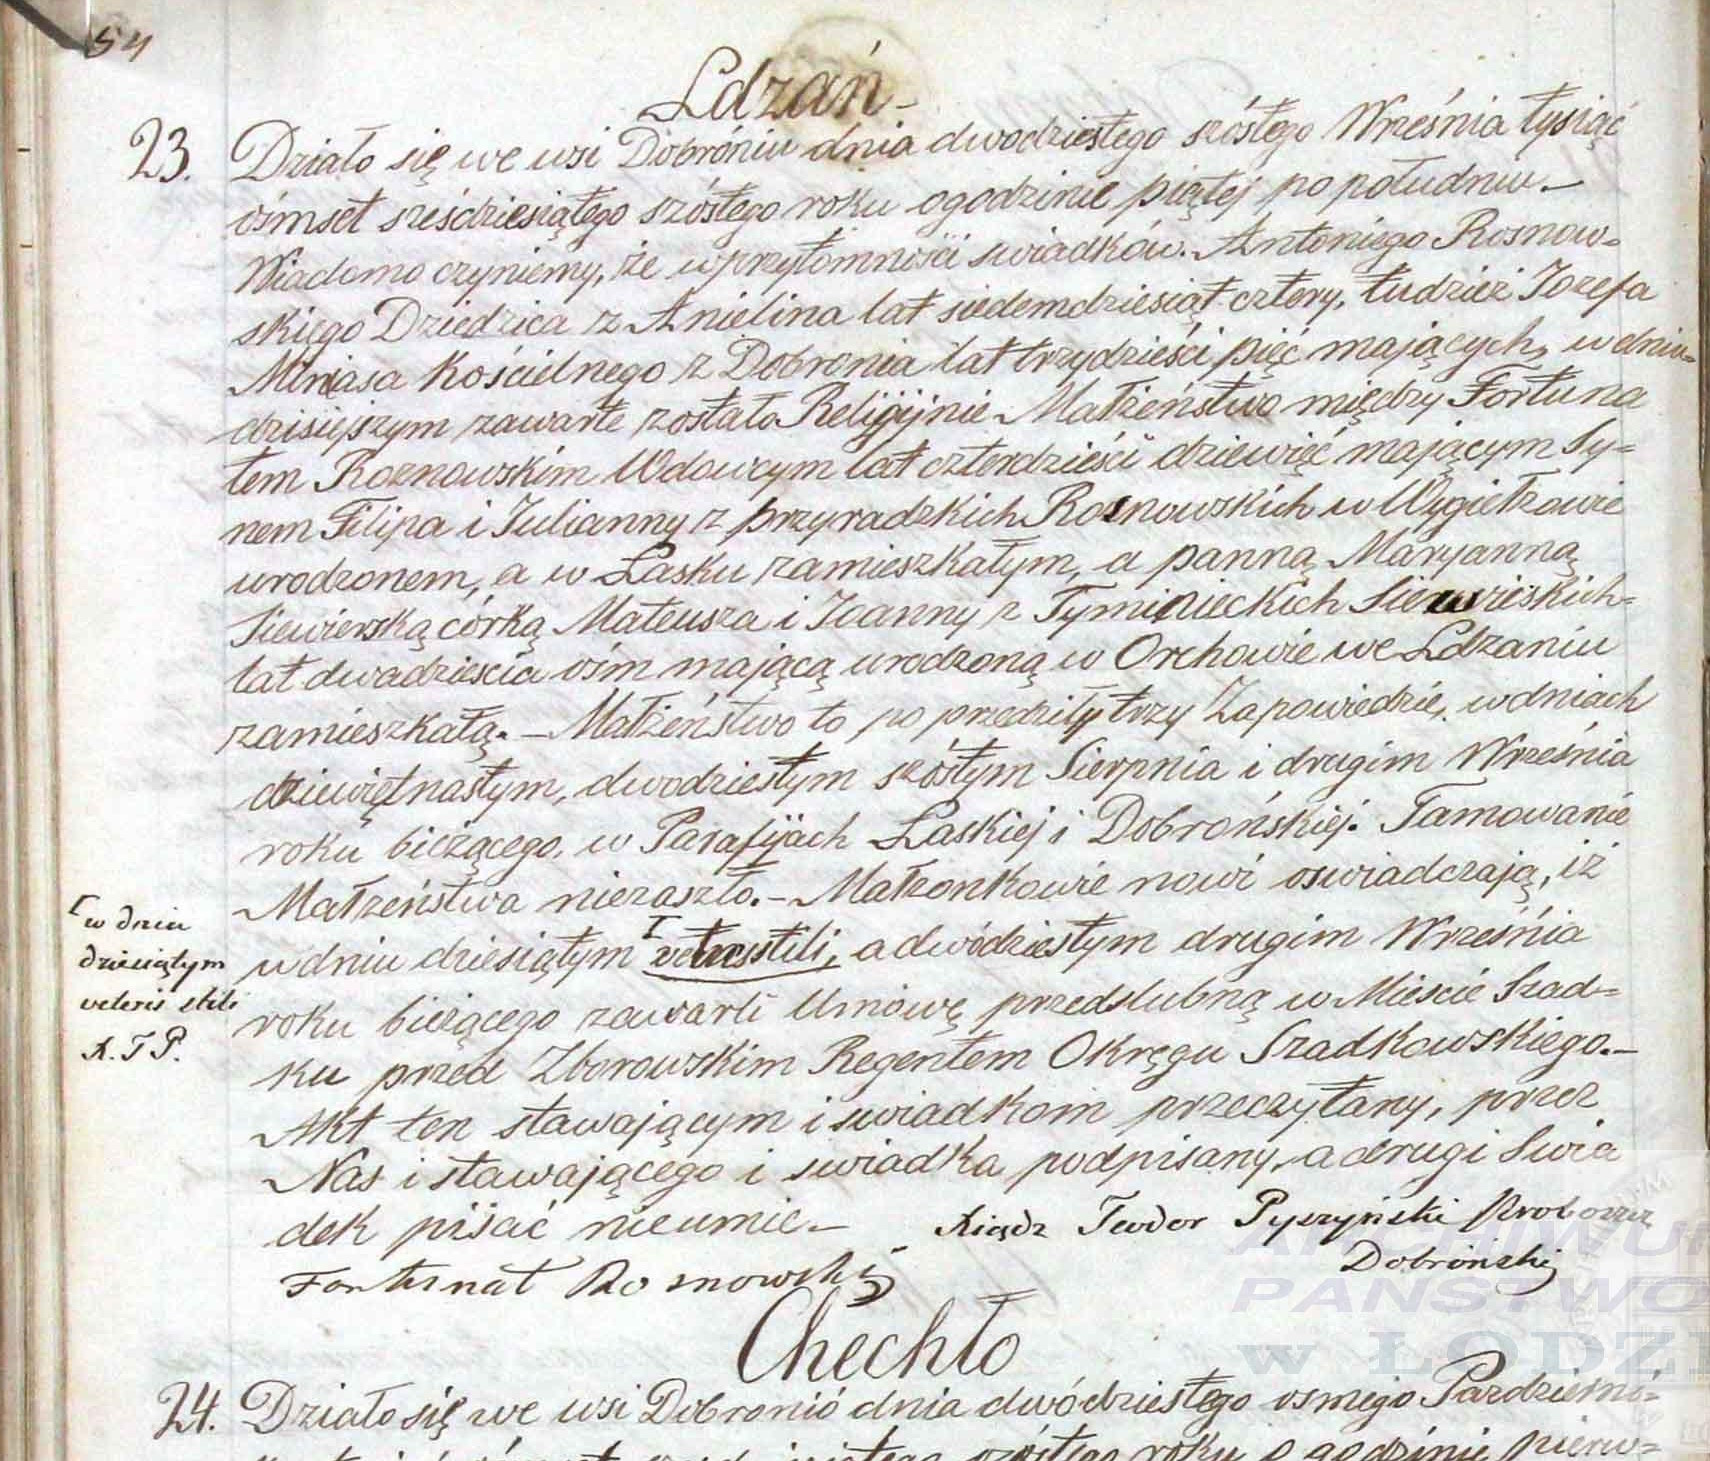 54
Ldzań
23. Działo się we wsi Dobroniu dnia dwodziestego szóstego Września tysiąc
ośmset sześdziesiątego szóstego roku ogodzinie piątej po południu.
Wiadomo czyniemy, że wprzytomności swiadków. Antoniego Rosnow-
skiego Dziedzica z Anielina lat siedemdziesiąt cztery, tudzież Jozefa
Kościelnego z Dobronia lat trzydzieści pięć mających, w dniu
dzisiejszym zawarte zostało Religijnie Małżeństwo między Fortuna
tem Rosnowskim Wdowcym lat czterdzieści dziewięć mającym Sy-
nem Filipa i Julianny z przyradzkich Rosnowskich w Wygiełzowie
urodzonem, a w Łasku zamieszkałym, a panną Maryanną
Siewierską córką Mateusza i Joanny z Tyminieckich Siewierskich-
lat dwadzieścia ośm mającą urodzoną w Orchowie we Ldzaniu
zamieszkałą. - Małżeństwo to poprzedziły trzy Zapowiedzie, wdniach
dziewiętnastym, dwodziestym szóstym Sierpnia i drugim Września
roku bieżącego, w Parafijach Łaskiej i Dobrońskiej. Tamowanie
Małżeństwa niezaszło. - Małżonkowie nowi oswiadczają, iż
wdniu dziesiątym a dwódziestym drugim Września
w dniu
dziesiątym
veteris stili
X. T P.
roku bieżącego zawarli Umówę przedslubną w Mieście Szad-
ku przed Zborowskim Regentem Okręgu Szadkowskiego.-
Akt ten stawającym i swiadkom przeczytany, przez
Nas i stawającego i swiadka podpisany, a drugi Swia
dek pisać nieumie. - Xiądz Teodor Pyszyński Proboszcz
Dobroński
Fortunat Rosnowski
Chechło
24. Działo się we wsi Dobronió dnia dwódziestego osmego Pazdzierni-
szóstego roku o godzinie pierw-
ARCHIWUM
PAŃSTWO
w ŁODZI